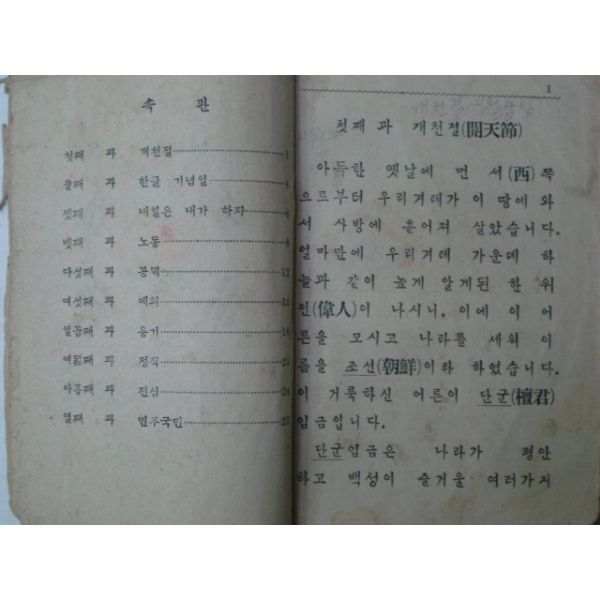 속 판
첫째 과 개천절 1
둘째 과 한글 기념일
셋째 과 내일은 내가 하자 6
넷째 과 노동 8
다섯째 과 공덕 12
여섯째 과 예의
일곱째 과 용기 18
여덟째 과 정직 21
아홉째 과 진심 24
열째 과 민주국민 27
1
첫째 과 개천절(開天節)
아득한 옛날에 먼 서(西)쪽
으로부터 우리겨레가 이 땅에 와
서 사방에 흩어져 살았습니다.
얼마만에 우리겨레 가운데 하
늘과 같이 높게 알게된 한 위
인(偉人)이 나시니, 이에 이 어
른을 모시고 나라를 세워 이
름을 조선(朝鮮)이라 하였습니다.
이 거룩하신 어른이 단군(檀君)
임금입니다.
단군임금은 나라가 평안
하고 백성이 즐거울 여러가지